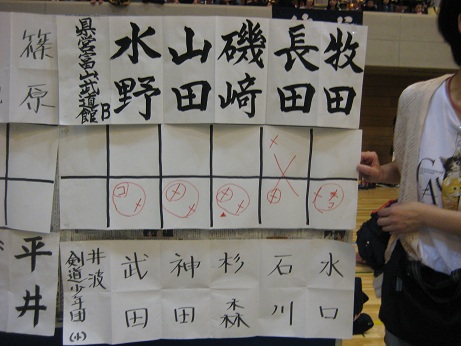 篠原
県営富山武道館B
水野
山田
磯崎
長田
牧田
平井
井波
剣道少年団(小)
武田
神田
杉森
石川
水口